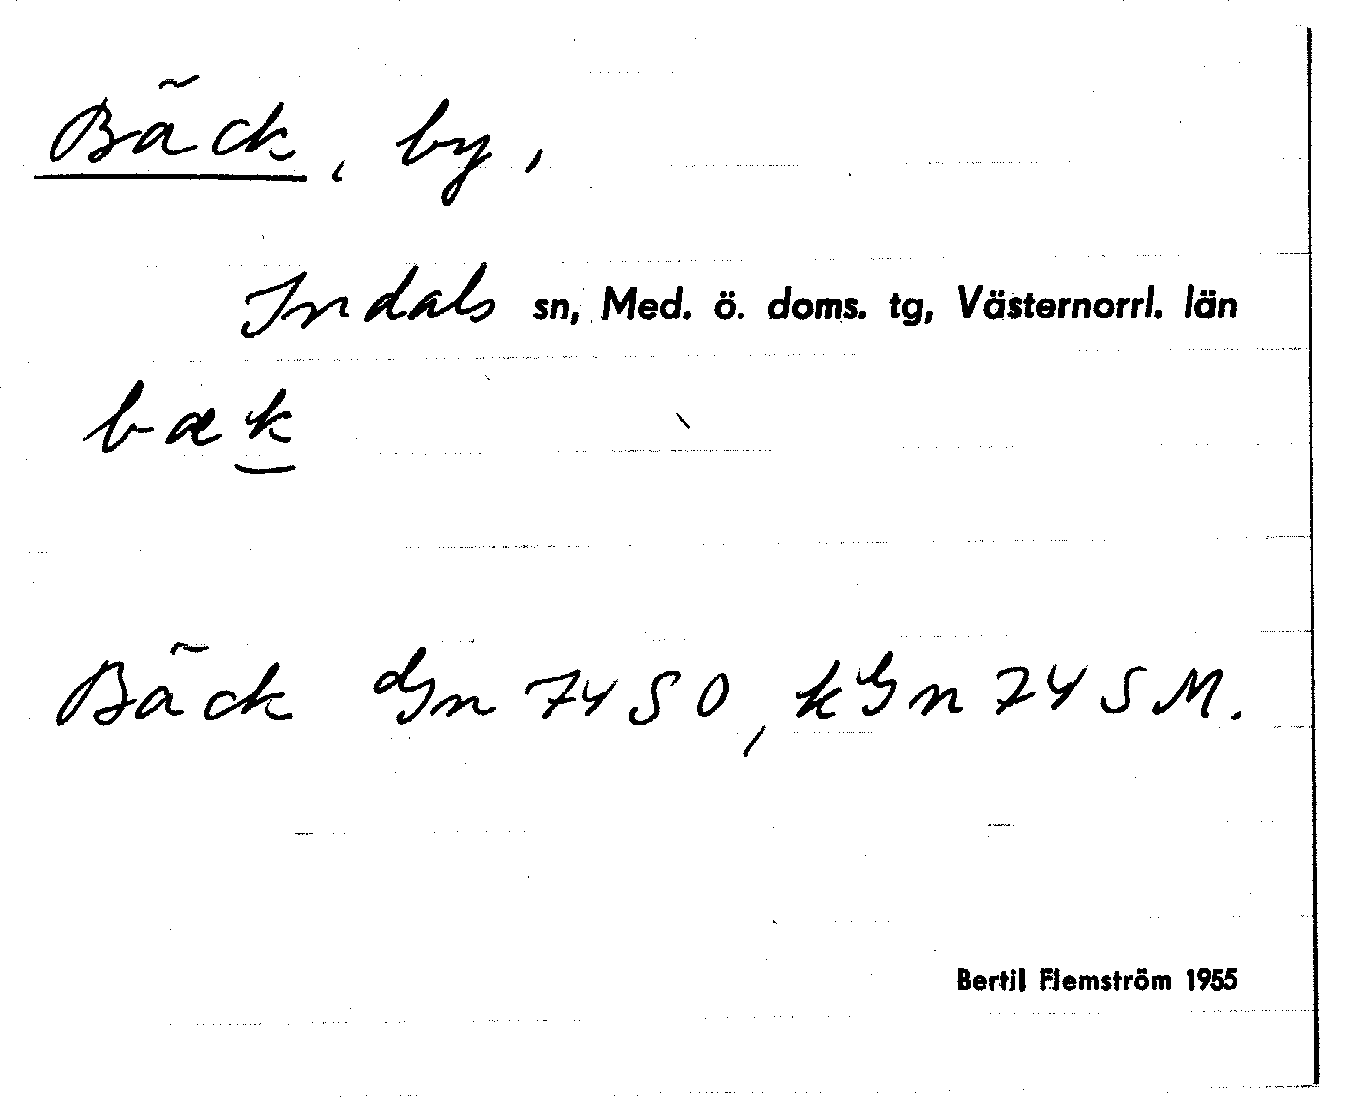 Bäck, by,
Indals sn, Med. ö. doms. tg, Västernorrl. län
bæk
Bäck dGn 74 SO, kGn 74 SM.
Bertil Flemström 1955